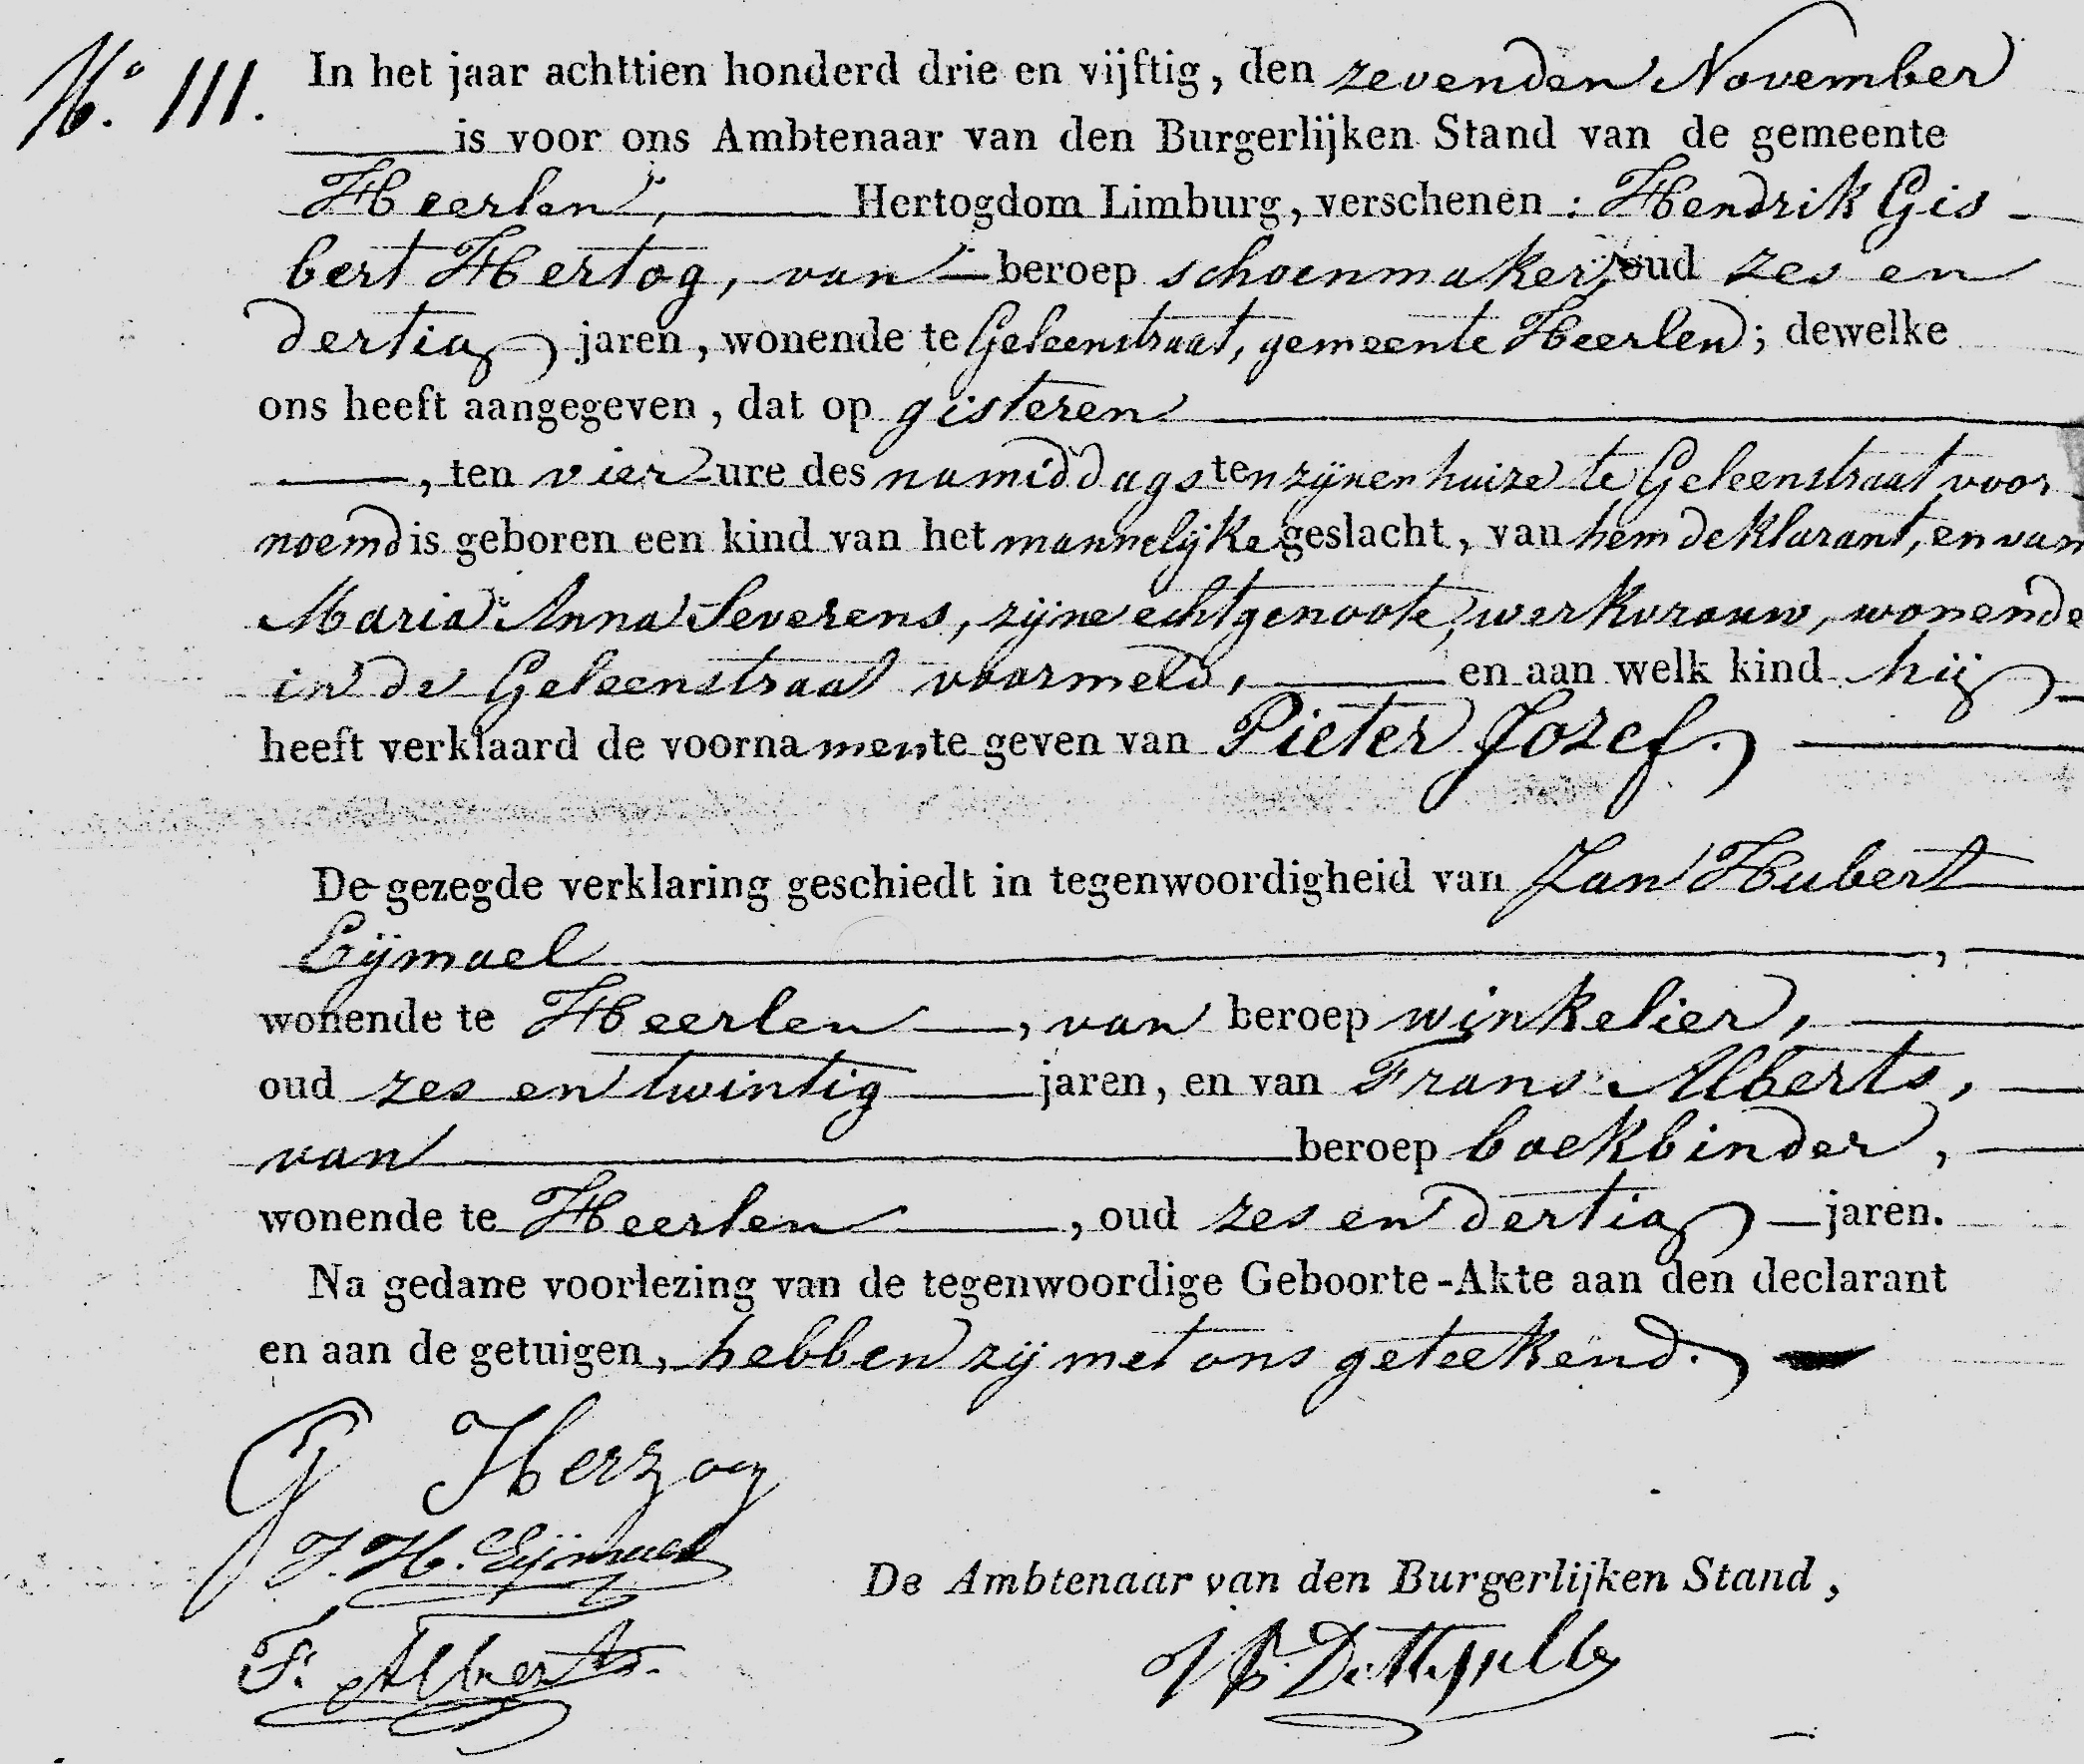 No. 111. In het jaar achttien honderd drie en vijftig, den zevenden November
is voor ons Ambtenaar van den Burgerlijken Stand van de gemeente
Heerlen, Hertogdom Limburg, verschenen : Hendrik Gis-
bert Hertog, van beroep schoenmaker, oud zes en
dertig jaren, wonende te Geleenstraat, gemeente Heerlen; dewelke
ons heeft aangegeven, dat op gisteren
, ten vier ure des namiddags ten zijnen huize te Geleenstraat voor-
noemd is geboren een kind van het mannelijke geslacht, van hem deklarant, en van
Maria Anna Severens, zijne echtgenoote, werkvrouw, wonende
in de Geleenstraat voormeld, en aan welk kind hij
heeft verklaard de voornamen te geven van Pieter Jozef.
De gezegde verklaring geschiedt in tegenwoordigheid van Jan Hubert
Eijmael ,
wonende te Heerlen , van beroep winkelier,
oud zes en twintig jaren, en van Frans Alberts,
van beroep boekbinder,
wonende te Heerlen , oud zes en dertig jaren.
Na gedane voorlezing van de tegenwoordige Geboorte-Akte aan den declarant
en aan de getuigen, hebben zij met ons geteekend.
G Herzog
J. H. Eijmael
De Ambtenaar van den Burgerlijken Stand,
F. Alberts.